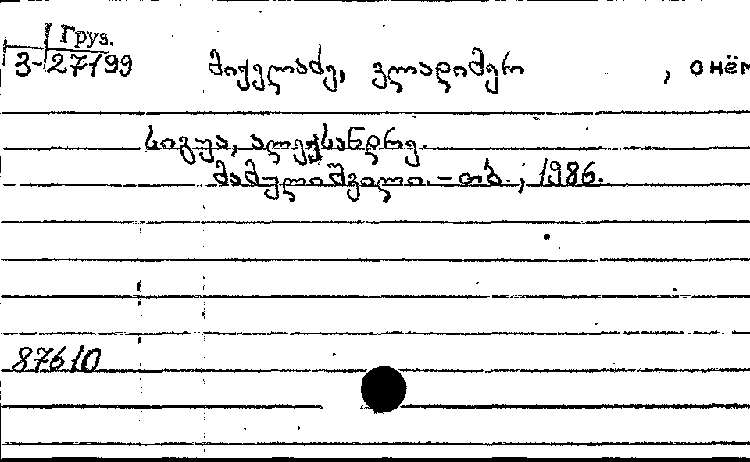 Груз.
3-27199
მიქელაძე, ვლადიმერ , о нём
სიგუა, ალექსანდრე.
მამულიშვილი. – თბ., 1986.
87610